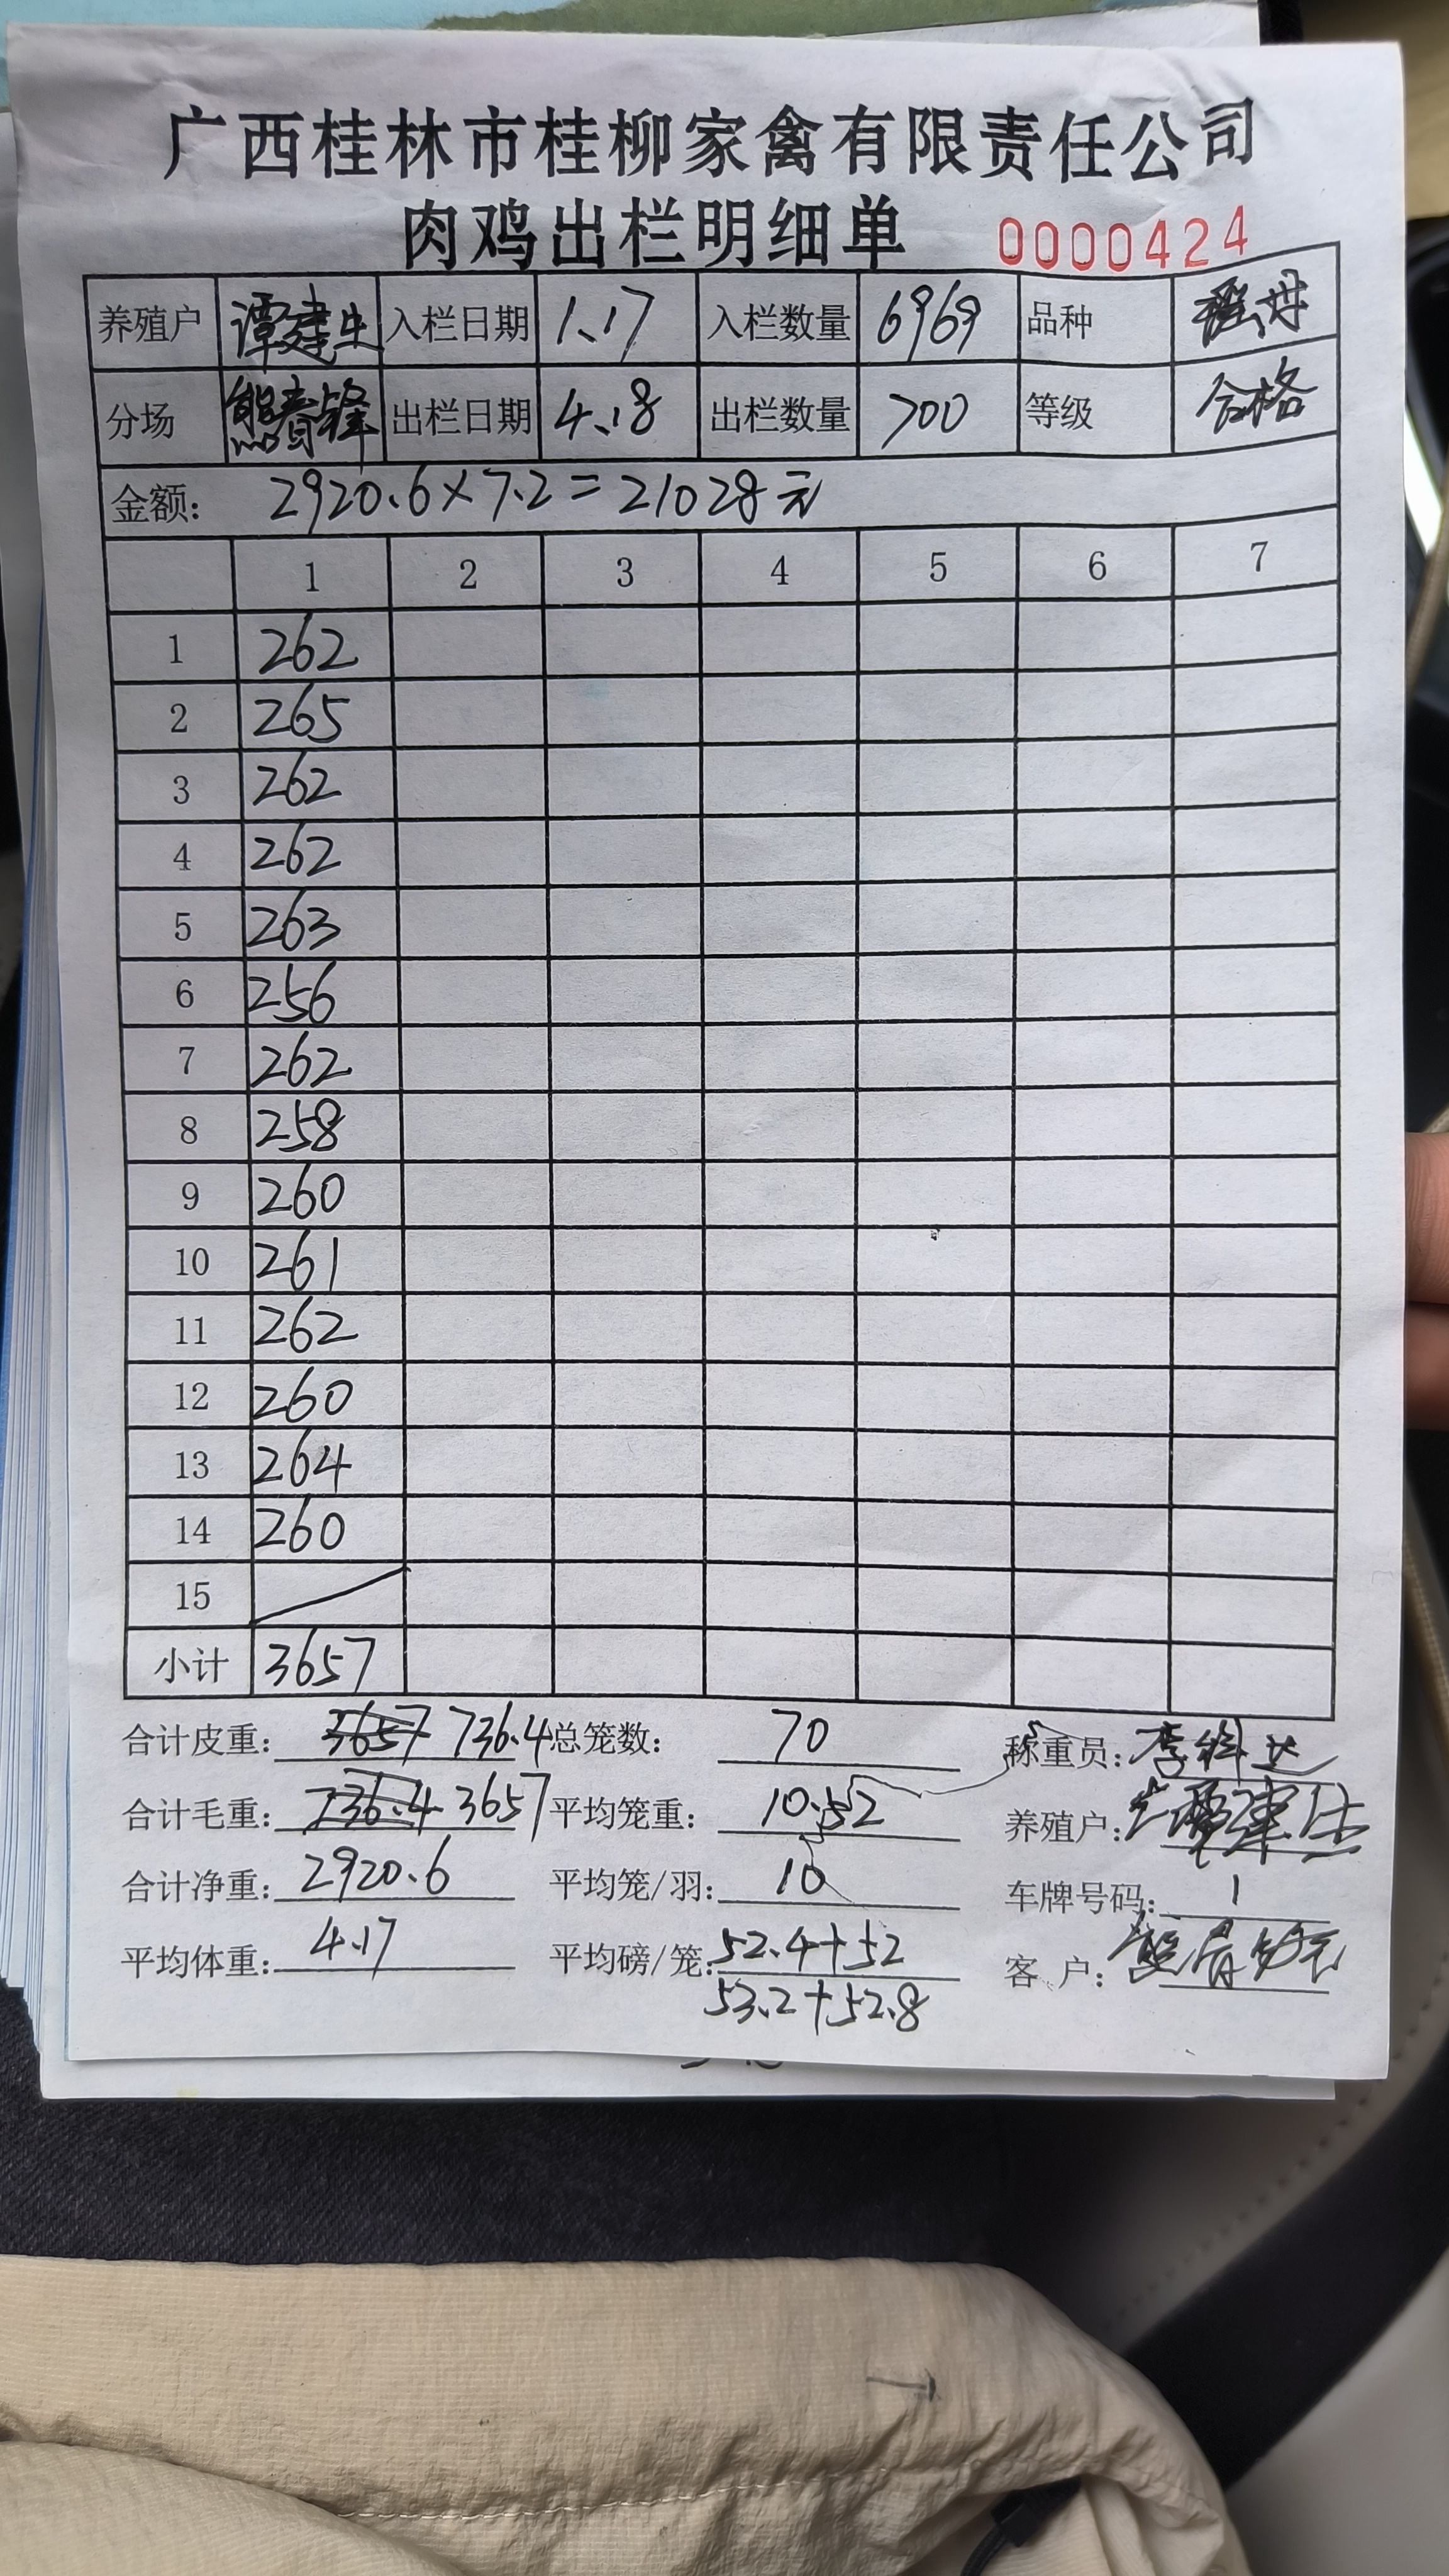 广西桂林市桂柳家禽有限责任公司
肉鸡出栏明细单 0000424
养殖户 谭建生 入栏日期 1.17 入栏数量 6969 品种
分场 熊春锋 出栏日期 4.18 出栏数量 700 等级 合格
金额: 2920.6×7.2=21028元
1 2 3 4 5 6 7
1 262
2 265
3 262
4 262
5 263
6 256
7 262
8 258
9 260
10 261
11 262
12 260
13 264
14 260
15
小计 3657
合计皮重: 3657 736.4 总笼数: 70 称重员: 李
合计毛重: 736.4 3657 平均笼重: 10.52 养殖户: 谭建生
合计净重: 2920.6 平均笼/羽: 10 车牌号码: 1
平均体重: 4.17 平均磅/笼: 52.4+52 客户:
53.2+52.8